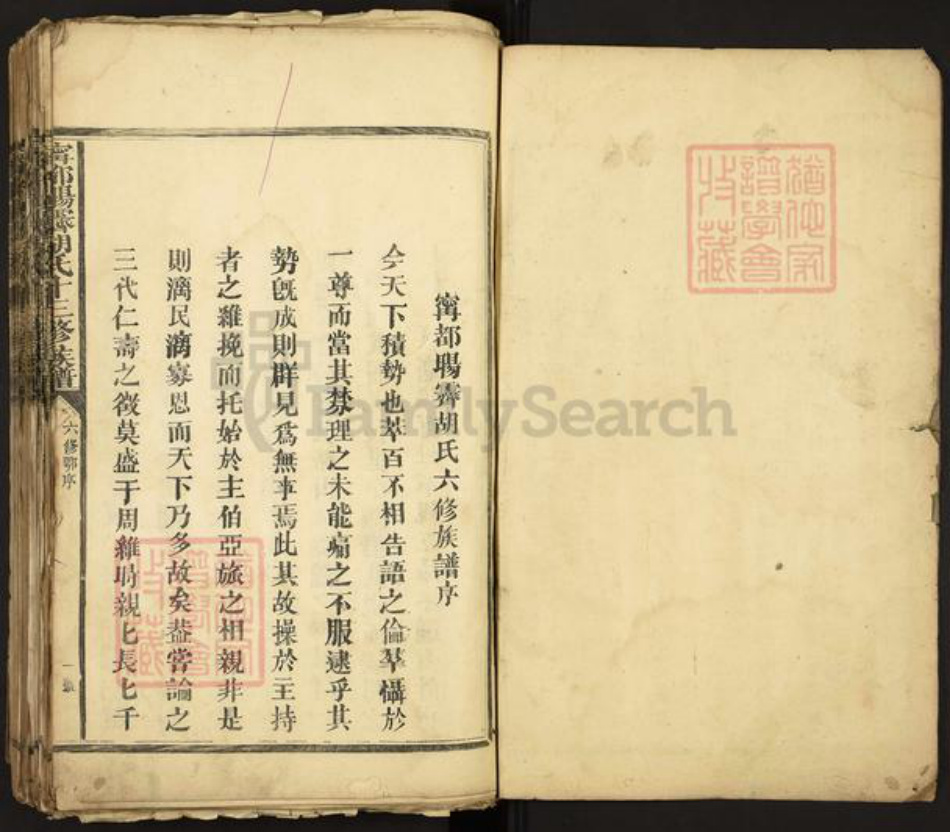 猶他家
譜學會
收藏
甯都賜霽胡氏六修族譜序
今天下積勢也萃百不相告語之倫羣懾於
一尊而當其棼理之未能痛之不服逮乎其
勢旣成則群見爲無事焉此其故操於主持
者之維挽而托始於主伯亞旅之相親非是
則漓民漓寡恩而天下乃多故矣葢嘗論之
三代仁壽之徵莫盛于周維時親匕長匕千
氏十三修族譜
六修鄂序
FamilySearch